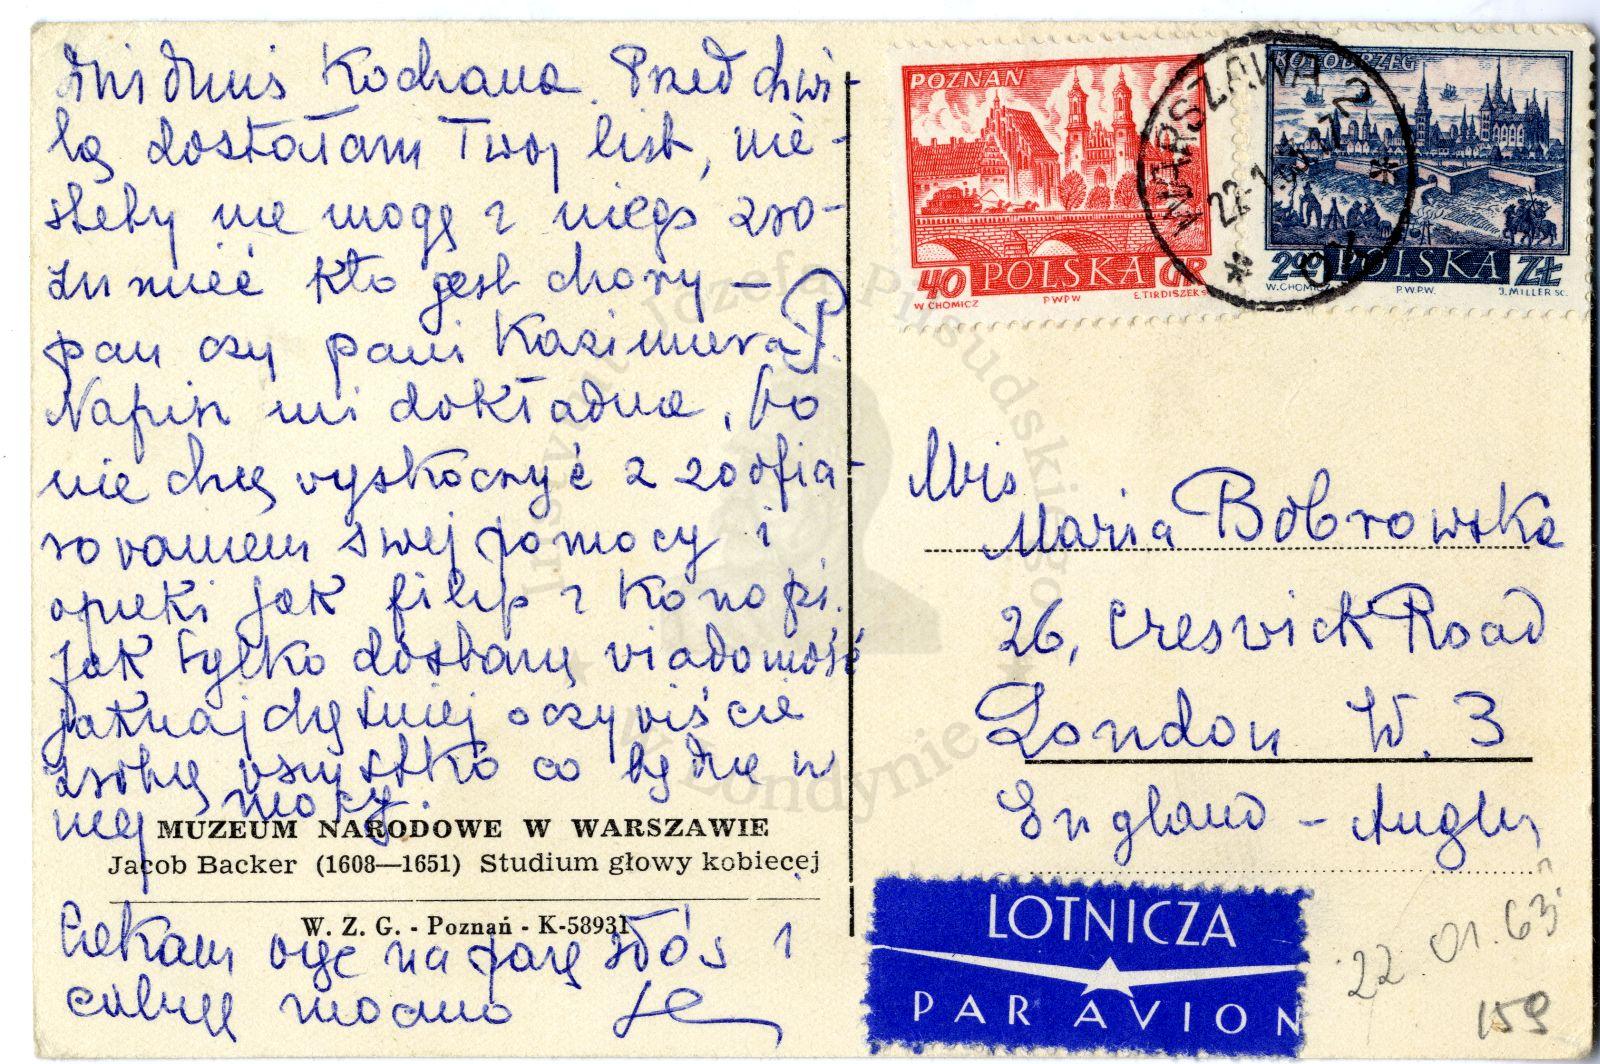 Kochana. Przed chwi-
lą dostałam Twój list, nie-
stety nie mogę z niego zro-
zumieć kto jest chory –
pan czy pani Kazimiera P.
Napisz mi dokładnie, bo
nie chcę wyskoczyć z zaofia-
rowaniem swej pomocy i
opieki jak filip z konopi.
Jak tylko dostanę wiadomość
jaknajchętniej oczywiście
zrobię wszystko co będzie w
mej mocy.
MUZEUM NARODOWE W WARSZAWIE
Jacob Backer (1608—1651) Studium głowy kobiecej
W. Z. G. - Poznań - K-58931
Czekam więc na parę słów i
całuję mocno
POZNAŃ
40 POLSKA GR
W. CHOMICZ P.W.P.W. E. TIRDISZEK SC.
KOŁOBRZEG
2.00 POLSKA ZŁ
W. CHOMICZ P.W.P.W. J. MILLER SC.
WARSZAWA 2
22-1
Miss
Maria Bobrowska
26, Creswick Road
London W. 3
England – Anglia
LOTNICZA
PAR AVION
22 01. 63
159
Instytut Józefa Piłsudskiego
w Londynie